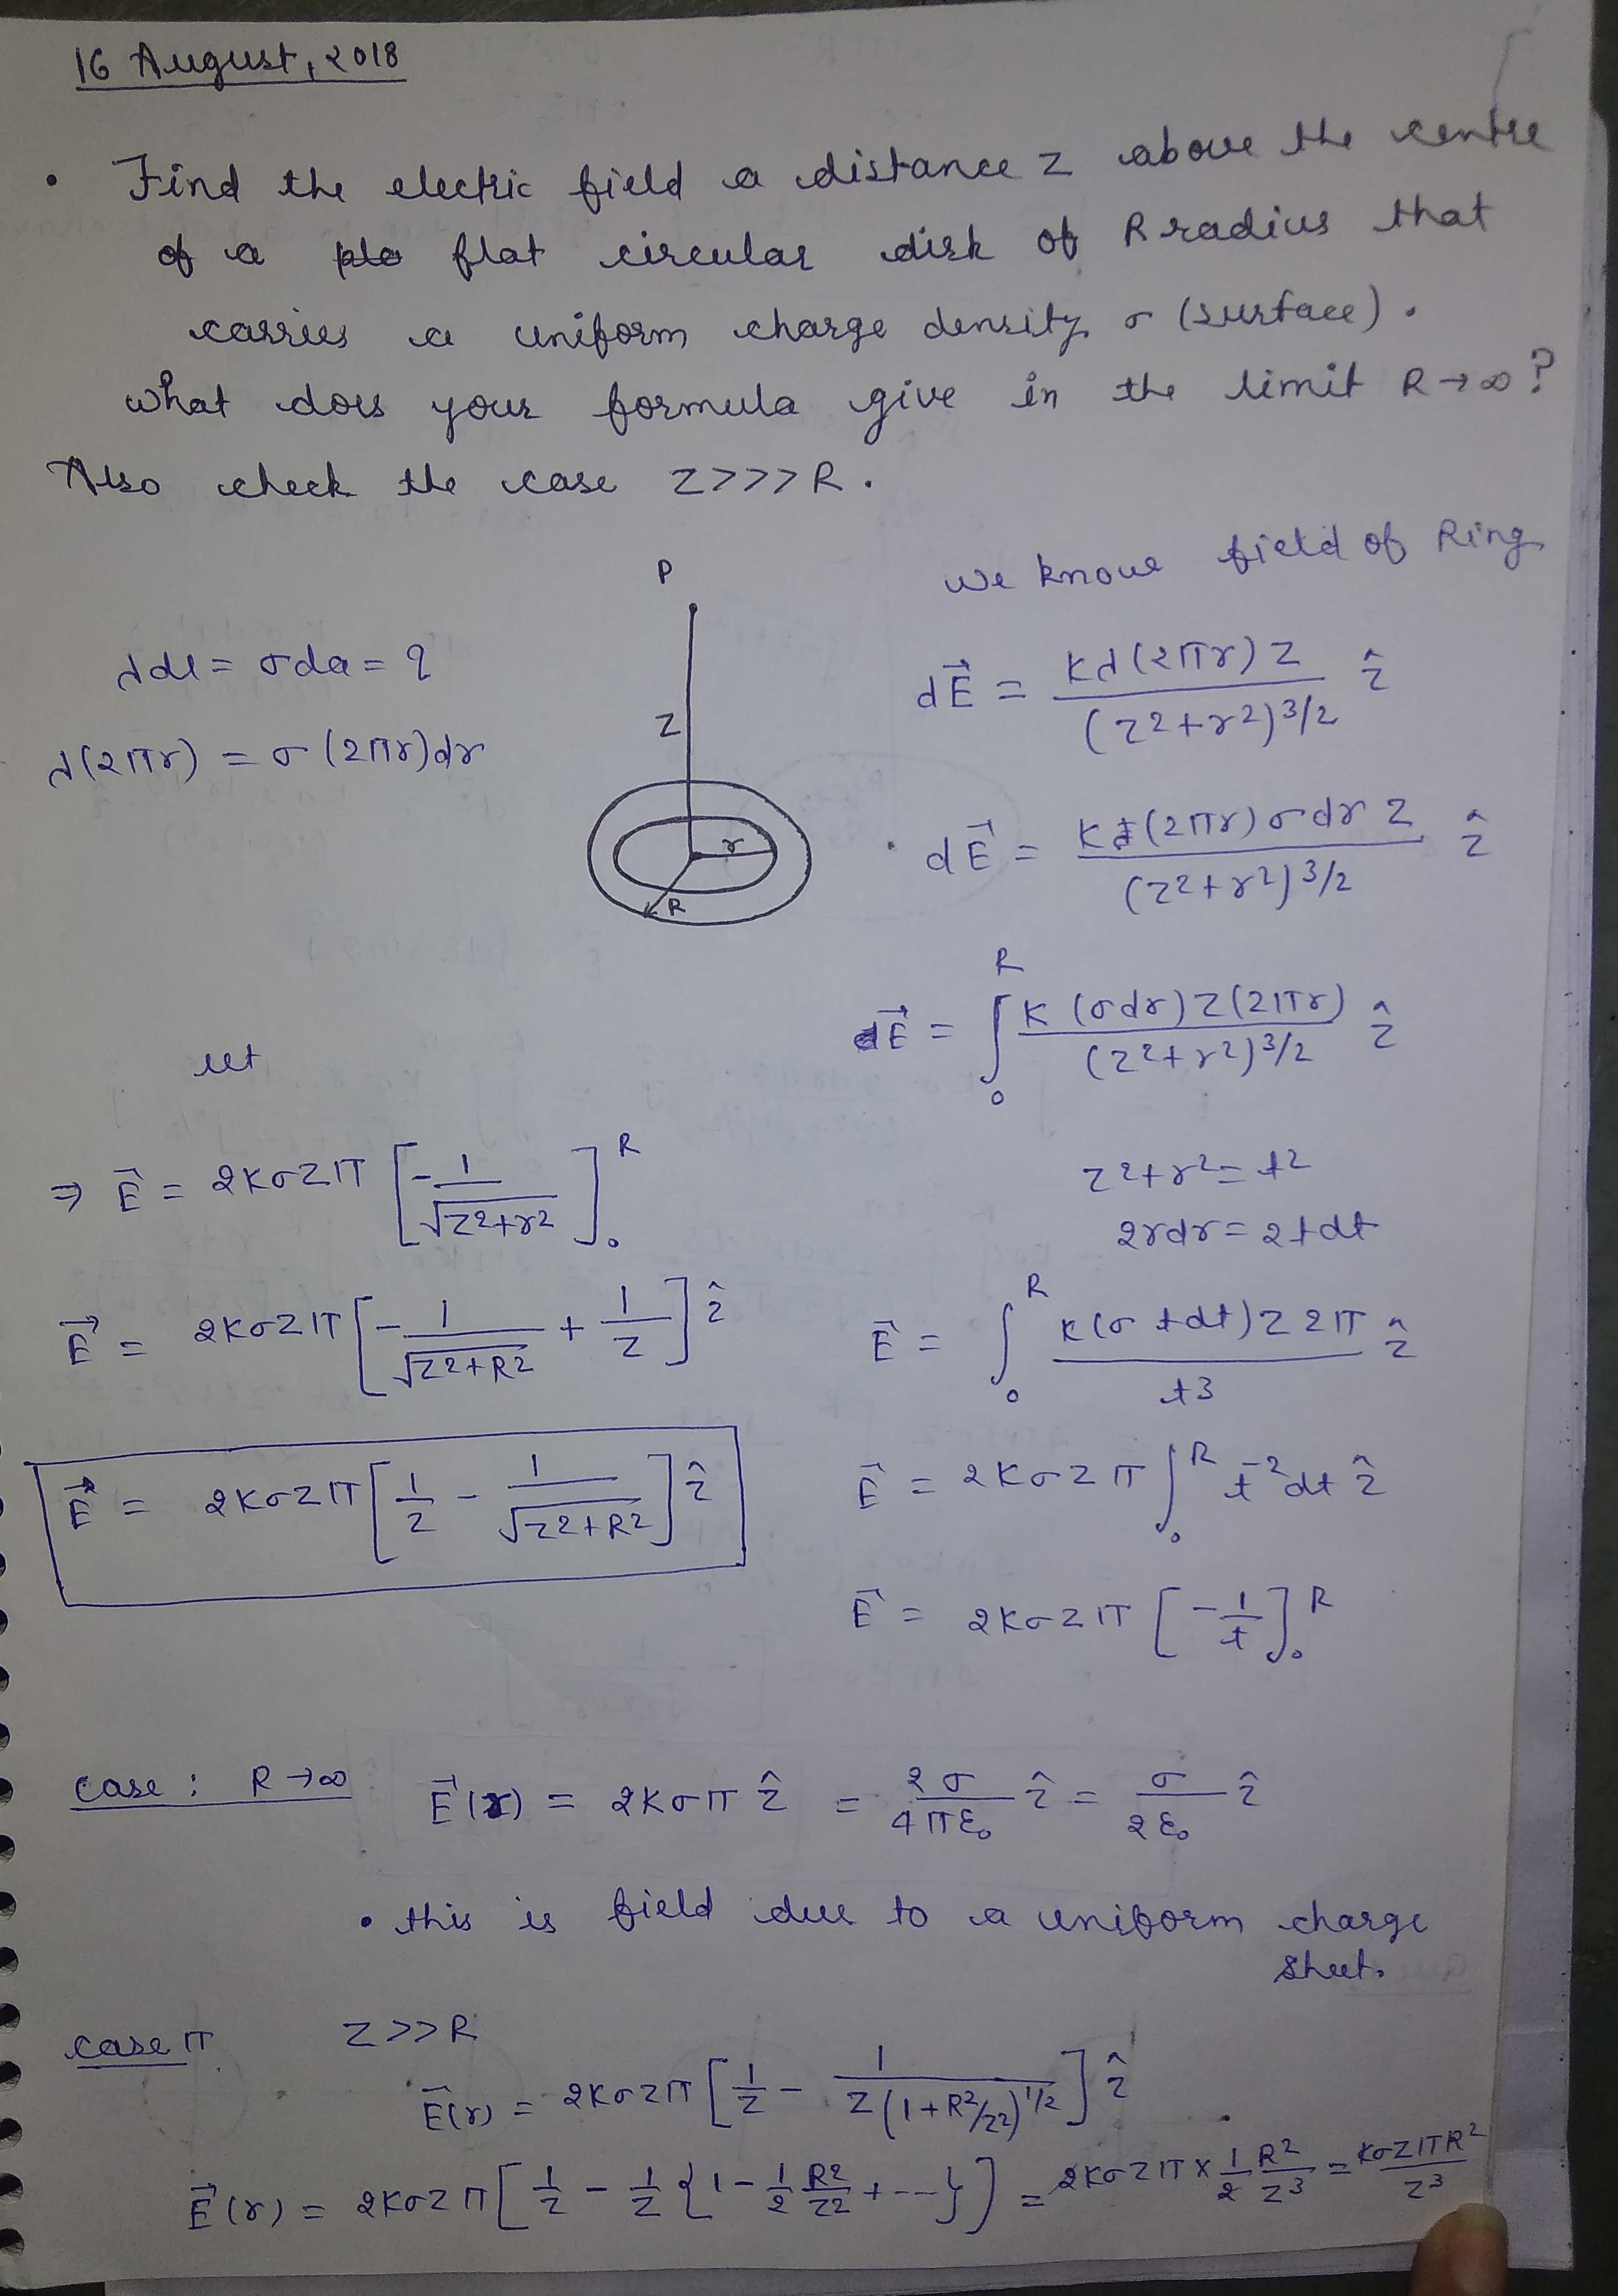 16 August, 2018
• Find the electric field a distance z above the centre
of a plo flat circular disk of R radius that
carries a uniform charge density σ (surface).
What does your formula give in the limit R→∞?
Also check the case z>>>R.
We know field of Ring
P
z
r
R
λdl = σda = q
λ(2πr) = σ(2πr)dr
dE⃗ = Kλ(2πr)z / (z²+r²)^3/2 ẑ
dE⃗ = K(2πr)σdr z / (z²+r²)^3/2 ẑ
E⃗ = ∫₀ᴿ K(σdr)z(2πr) / (z²+r²)^3/2 ẑ
let
z²+r² = t²
2rdr = 2tdt
E⃗ = ∫₀ᴿ K(σ tdt)z 2π / t³ ẑ
E⃗ = 2Kσzπ ∫₀ᴿ t⁻²dt ẑ
E⃗ = 2Kσzπ [-1/t]₀ᴿ
⇒ E⃗ = 2Kσzπ [-1/√z²+r²]₀ᴿ
E⃗ = 2Kσzπ [-1/√z²+R² + 1/z] ẑ
E⃗ = 2Kσzπ [1/z - 1/√z²+R²] ẑ
case : R→∞ E⃗(r) = 2Kσπ ẑ = 2σ/4πε₀ ẑ = σ/2ε₀ ẑ
• this is field due to a uniform charge
sheet.
case II z>>R
E⃗(r) = 2Kσzπ [1/z - 1/z(1+R²/z²)^1/2] ẑ
E⃗(r) = 2Kσzπ [1/z - 1/z {1 - 1/2 R²/z² + ---}] = 2Kσzπ × 1/2 R²/z³ = KσzπR²/z³